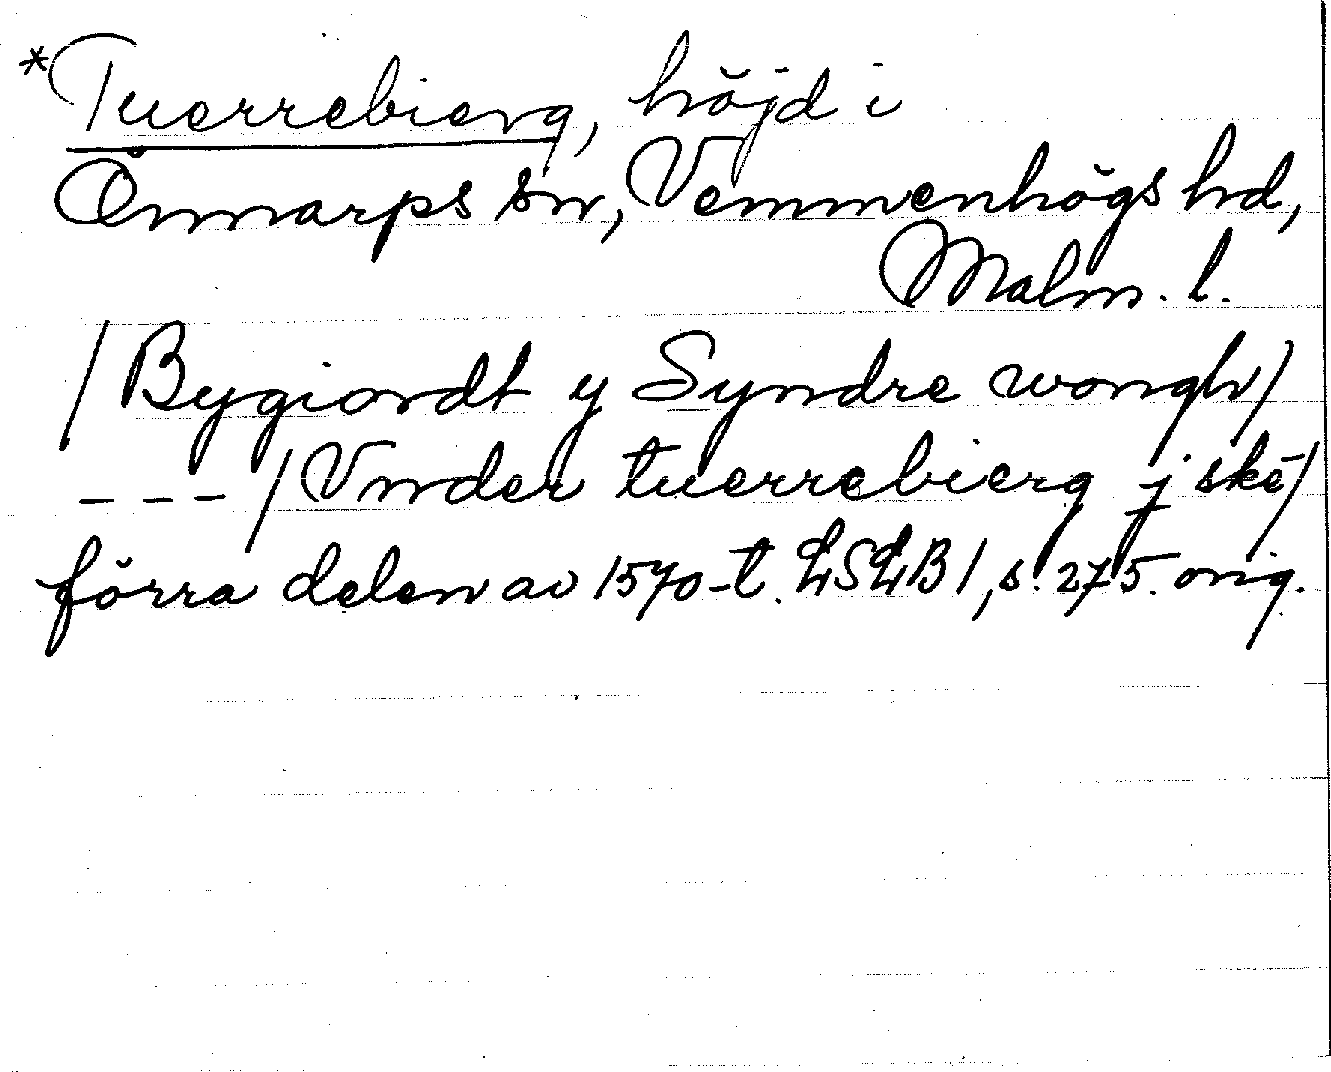 *Tuerrebierg, höjd i
Önnarps sn, Vemmenhögs hd,
Malm. l.
/Bygiordt y Syndre wongh/
--- /Vnder tuerrebierg j ske/
förra delen av 1570-t. LSLB 1, s. 275. orig.